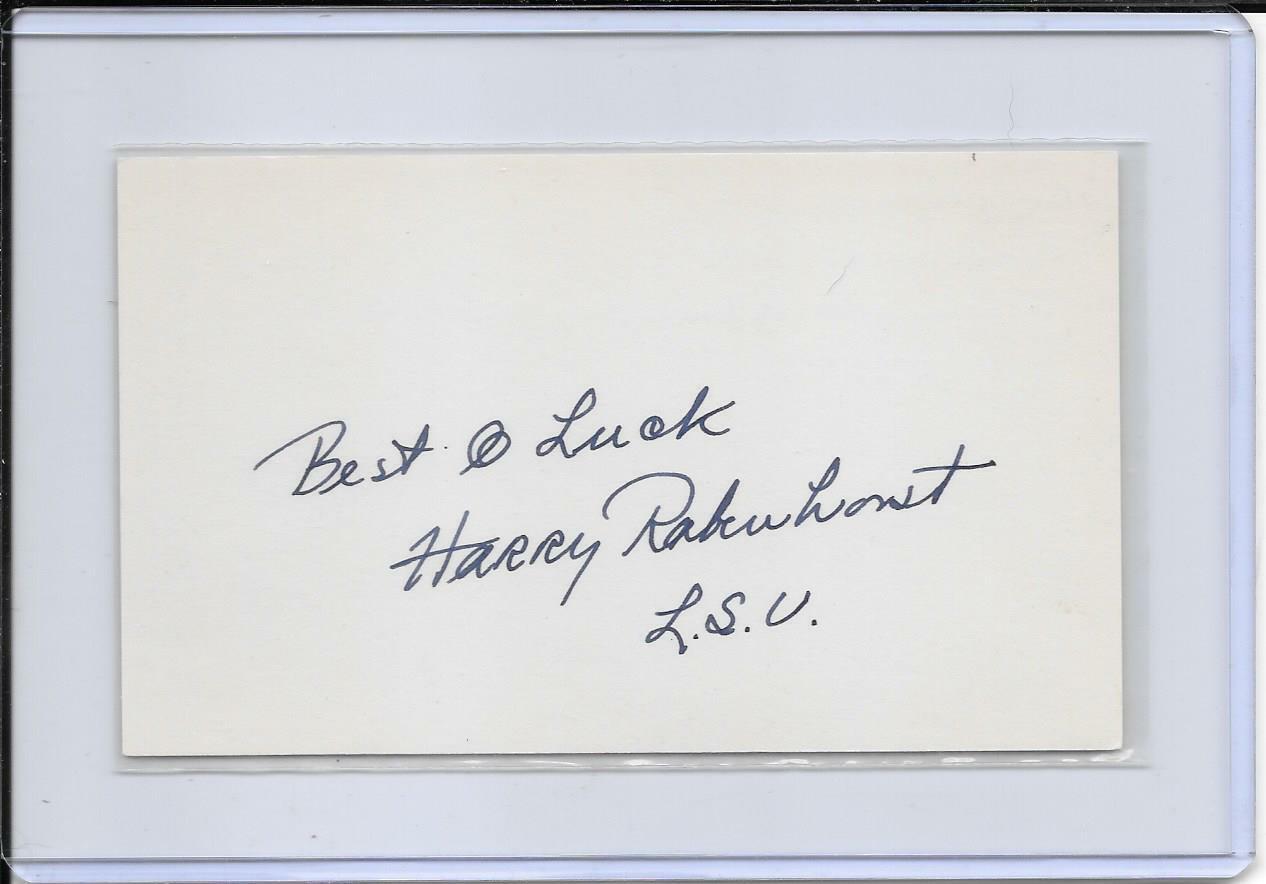 Best O Luck
Harry Rabenhorst
L.S.U.